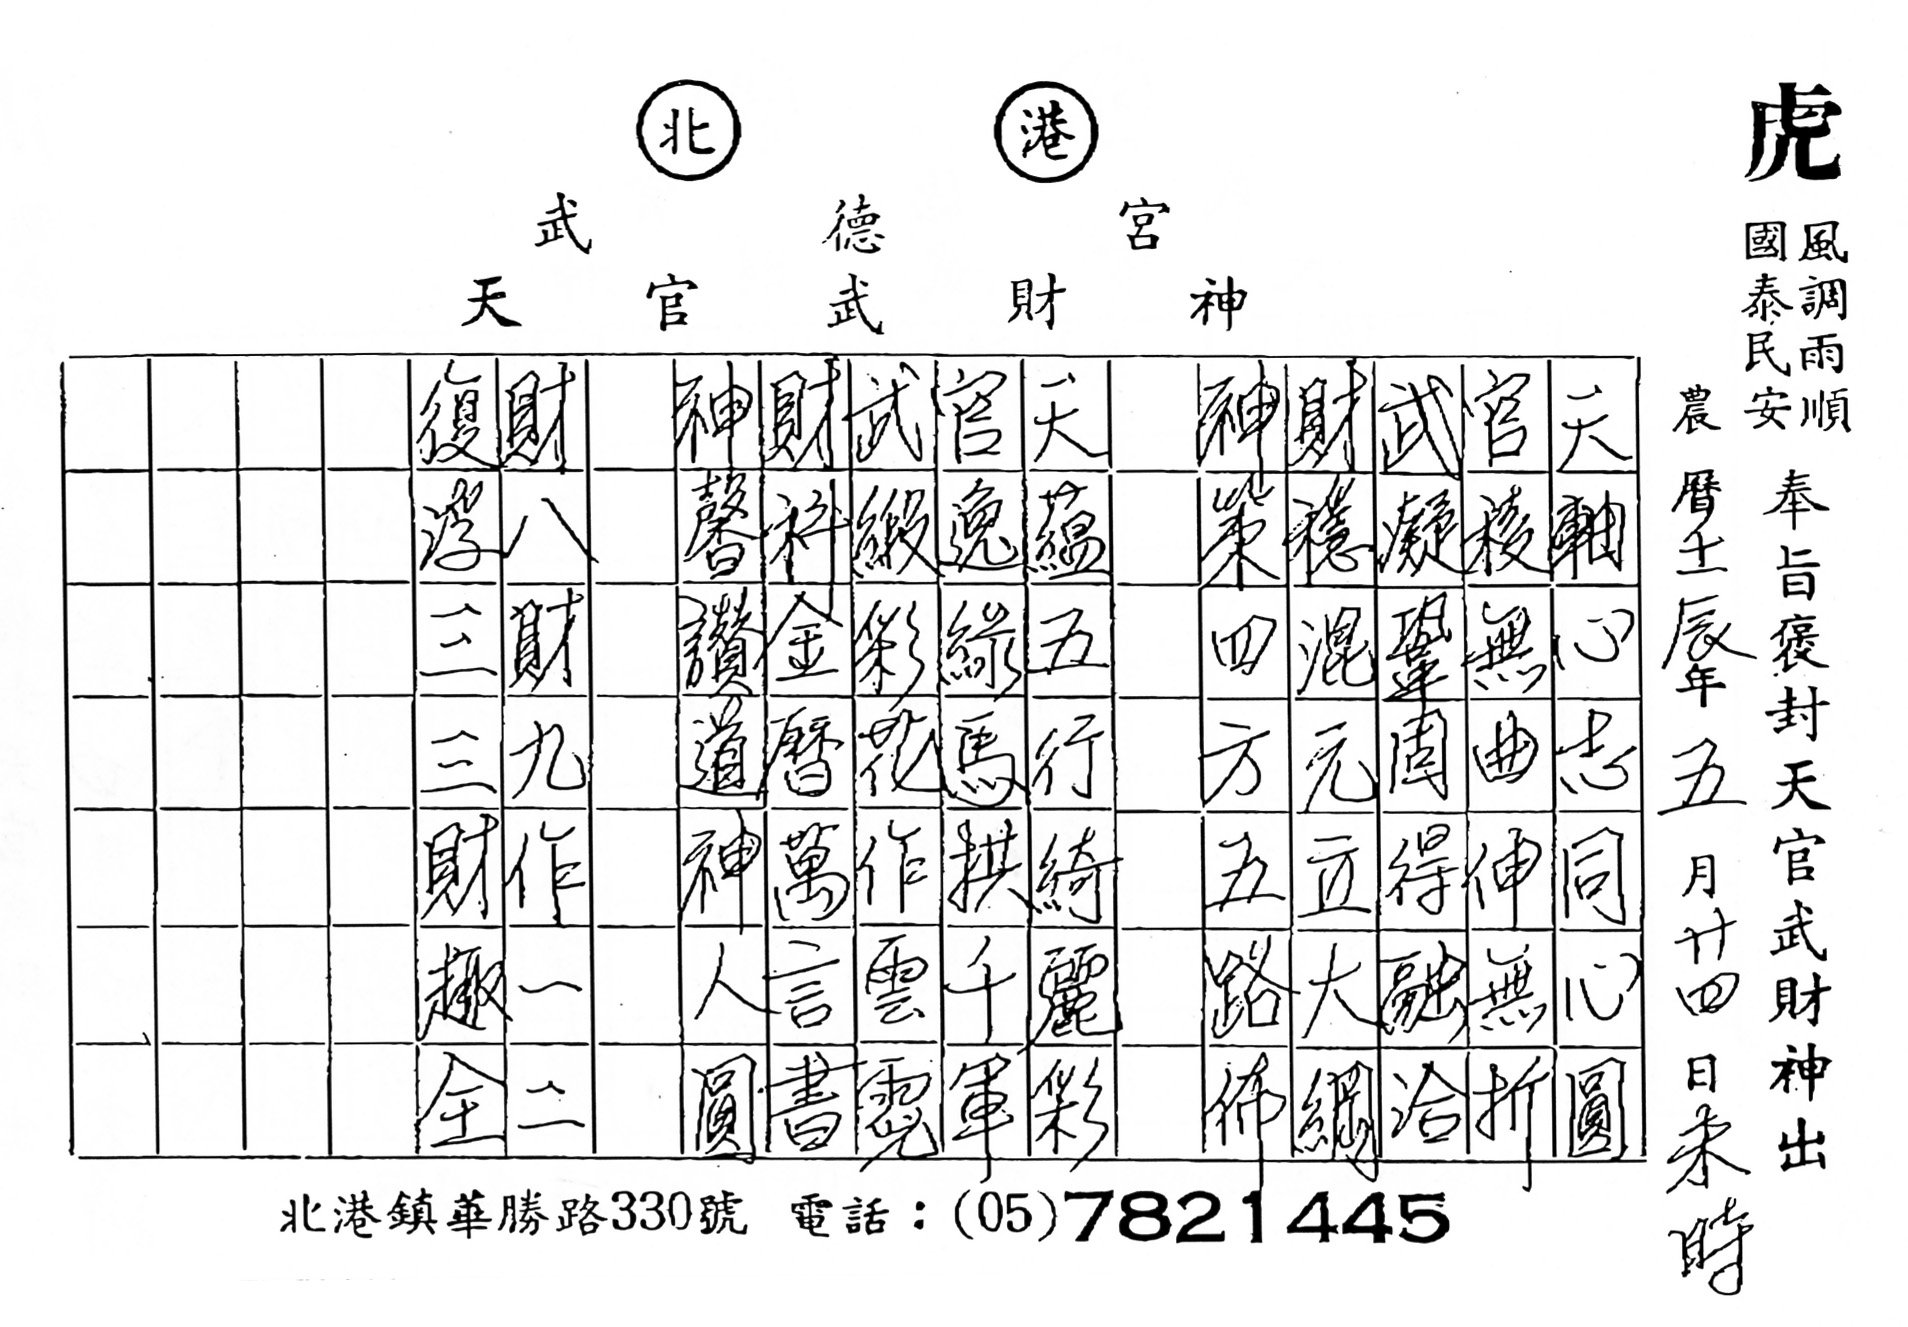 北港
武德宮
天官武財神
虎
風調雨順
國泰民安
奉旨褒封天官武財神出
農曆壬辰年五月廿四日未時
天軸心志同心圓
官稜無曲伸無折
武凝鞏周得融洽
財穩混元立大綱
神策四方五路佈
天蘊五行綺麗彩
官逸綠馬拱千軍
武緞彩花作雲霓
財金曆萬言書
神馨讚道神人圓
財八財九作一二
復浮三三財趣全
北港鎮華勝路330號 電話:(05)7821445